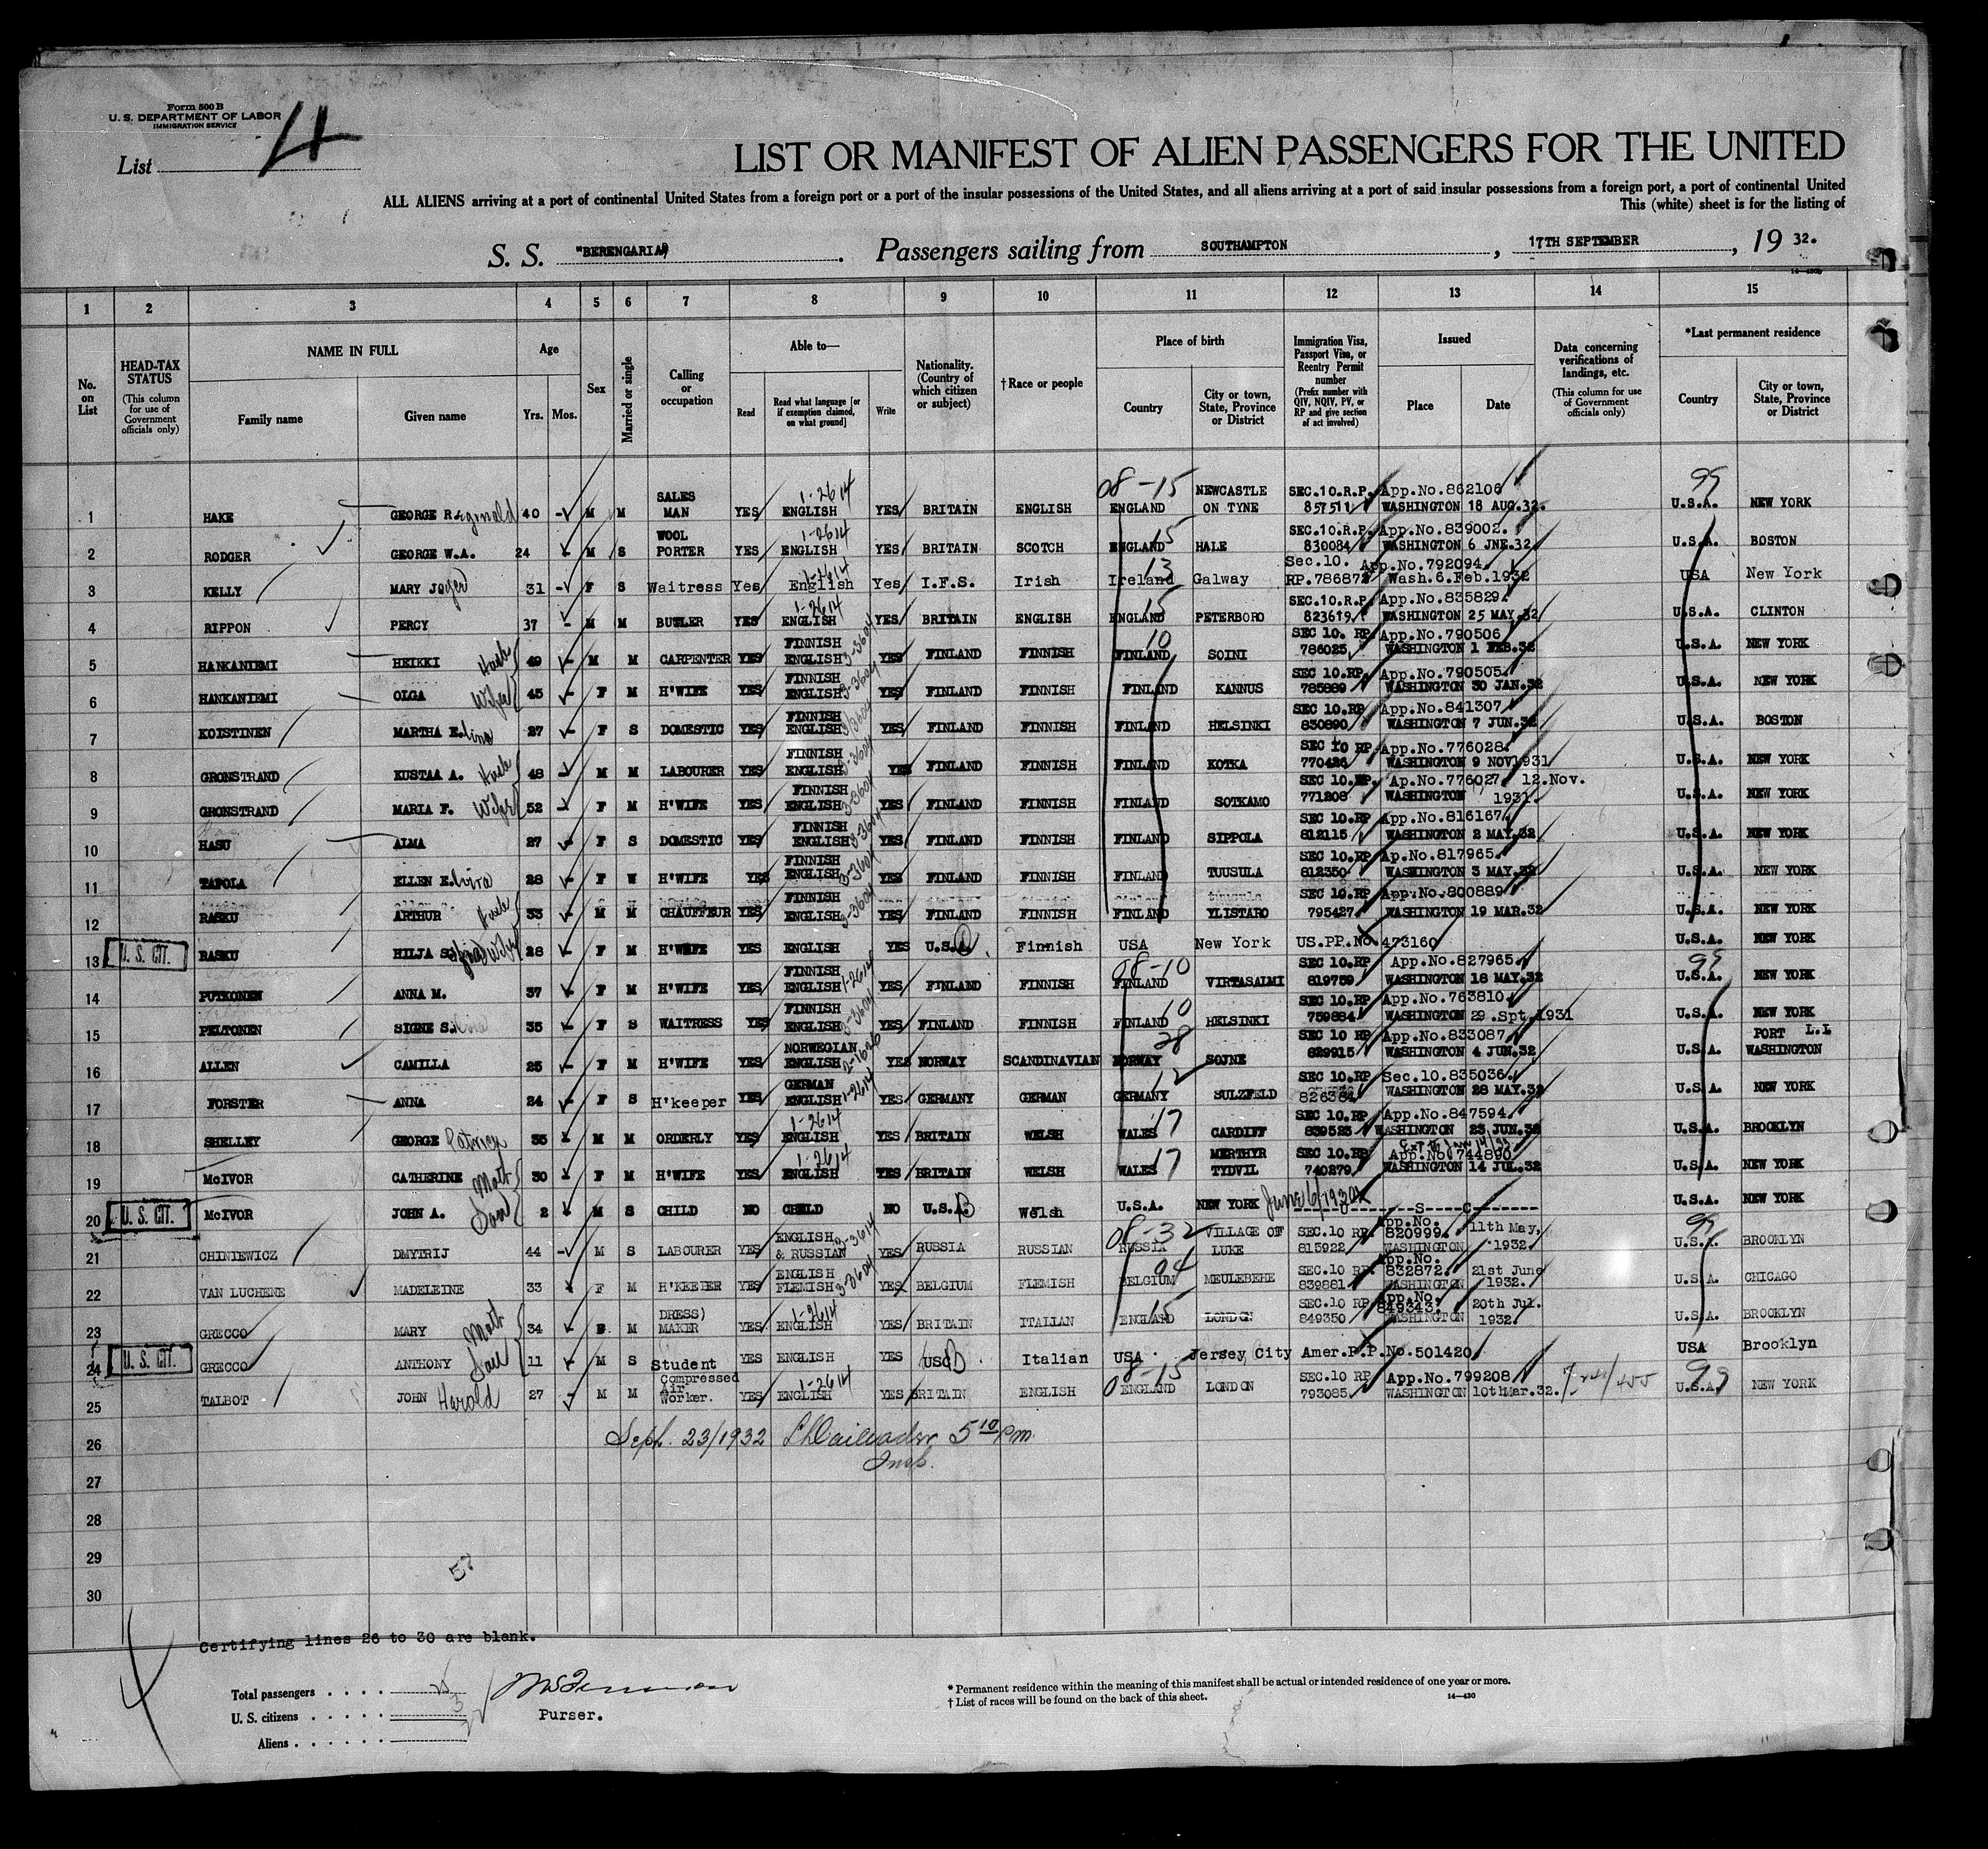 Form 500 B
U. S. DEPARTMENT OF LABOR
IMMIGRATION SERVICE
List 4
LIST OR MANIFEST OF ALIEN PASSENGERS FOR THE UNITED
ALL ALIENS arriving at a port of continental United States from a foreign port or a port of the insular possessions of the United States, and all aliens arriving at a port of said insular possessions from a foreign port, a port of continental United
This (white) sheet is for the listing of
S. S. "BERENGARIA" . Passengers sailing from SOUTHAMPTON , 17TH SEPTEMBER , 19 32.
1 2 3 4 5 6 7 8 9 10 11 12 13 14 15
No. on List
HEAD-TAX STATUS (This column for use of Government officials only)
NAME IN FULL
Family name
Given name
Age
Yrs. Mos.
Sex
Married or single
Calling or occupation
Able to—
Read
Read what language [or if exemption claimed, on what ground]
Write
Nationality. (Country of which citizen or subject)
†Race or people
Place of birth
Country
City or town, State, Province or District
Immigration Visa, Passport Visa, or Reentry Permit number (Prefix number with QIV, NQIV, PV, or RP and give section of act involved)
Issued
Place
Date
Data concerning verifications of landings, etc. (This column for use of Government officials only)
*Last permanent residence
Country
City or town, State, Province or District
1 HAKE GEORGE Reginald 40 - M M SALES MAN YES 1-2614 ENGLISH YES BRITAIN ENGLISH 08-15 ENGLAND NEWCASTLE ON TYNE SEC.10.R.P. 857511 App.No.862106 WASHINGTON 18 AUG.32. 99 U.S.A. NEW YORK
2 RODGER GEORGE W.A. 24 - M S WOOL PORTER YES 1-2614 ENGLISH YES BRITAIN SCOTCH 15 ENGLAND HALE SEC.10.R.P. 830084 App.No.839002. WASHINGTON 6 JNE.32 U.S.A. BOSTON
3 KELLY MARY Joyed 31 - F S Waitress Yes 1-2614 English Yes I.F.S. Irish 13 Ireland Galway Sec.10. RP.786872 App.No.792094. Wash.6.Feb.1932 USA New York
4 RIPPON PERCY 37 - M M BUTLER YES 1-2614 ENGLISH YES BRITAIN ENGLISH 15 ENGLAND PETERBORO SEC.10.R.P. 823619 App.No.835829. WASHINGTON 25 MAY.32 U.S.A. CLINTON
5 HANKANIEMI HEIKKI Husb 49 - M M CARPENTER YES FINNISH ENGLISH 3-3604 YES FINLAND FINNISH 10 FINLAND SOINI SEC 10. RP 786025 App.No.790506 WASHINGTON 1 FEB.32 U.S.A. NEW YORK
6 HANKANIEMI OLGA Wife 45 - F M H'WIFE YES FINNISH ENGLISH 3-3604 YES FINLAND FINNISH FINLAND KANNUS SEC 10.RP. 785889 App.No.790505. WASHINGTON 30 JAN.32 U.S.A. NEW YORK
7 KOISTINEN MARTHA Elina 27 - F S DOMESTIC YES FINNISH ENGLISH 3-3604 YES FINLAND FINNISH FINLAND HELSINKI SEC 10.RP 830890 App.No.841307. WASHINGTON 7 JUN.32 U.S.A. BOSTON
8 GRONSTRAND KUSTAA A. Husb 48 - M M LABOURER YES FINNISH ENGLISH 3-3604 YES FINLAND FINNISH FINLAND KOTKA SEC 10 RP 770426 App.No.776028. WASHINGTON 9 NOV 1931 U.S.A. NEW YORK
9 GRONSTRAND MARIA F. Wife 52 - F M H'WIFE YES FINNISH ENGLISH 3-3604 YES FINLAND FINNISH FINLAND SOTKAMO SEC 10.RP. 771208 Ap.No.776027. WASHINGTON 12.Nov. 1931. U.S.A. NEW YORK
10 HASU ALMA 27 - F S DOMESTIC YES FINNISH ENGLISH 3-3604 YES FINLAND FINNISH FINLAND SIPPOLA SEC 10.RP 812115 App.No.816167 WASHINGTON 2 MAY.32 U.S.A. NEW YORK
11 TAPOLA ELLEN Elvira 28 - F W H'WIFE YES FINNISH ENGLISH 3-3604 YES FINLAND FINNISH FINLAND TUUSULA SEC 10.RP 812350 Ap.No.817965. WASHINGTON 3 MAY.32 U.S.A. NEW YORK
12 RASKU ARTHUR Husb 33 - M M CHAUFFEUR YES FINNISH ENGLISH 3-3604 YES FINLAND FINNISH FINLAND YLISTARO SEC 10.RP 795427 App.No.800889 WASHINGTON 19 MAR.32 U.S.A. NEW YORK
13 U. S. CIT. RASKU HILJA Wife 28 - F M H'WIFE YES ENGLISH YES U.S.A. Finnish USA New York US.PP.No.473160 U.S.A. NEW YORK
14 PUTKONEN ANNA M. 37 - F M H'WIFE YES FINNISH ENGLISH 1-2614 YES FINLAND FINNISH 08-10 FINLAND VIRTASALMI SEC 10.RP 819759 App.No.827965. WASHINGTON 18 MAY.32 99 U.S.A. NEW YORK
15 PELTONEN SIGNE S. 35 - F S WAITRESS YES FINNISH ENGLISH 3-3604 YES FINLAND FINNISH 10 FINLAND HELSINKI SEC 10.RP 759884 App.No.763810. WASHINGTON 29.Spt.1931 U.S.A. NEW YORK
16 ALLEN CAMILLA 25 - F M H'WIFE YES NORWEGIAN ENGLISH 2-1626 YES NORWAY SCANDINAVIAN 28 NORWAY SOJNE SEC 10 RP 829915 App.No.833087 WASHINGTON 4 JUN.32 U.S.A. PORT WASHINGTON L.I.
17 FORSTER ANNA 24 - F S H'keeper YES GERMAN ENGLISH 1-2614 YES GERMANY GERMAN 12 GERMANY SULZFELD SEC 10.RP 826384 Sec.10.835036. WASHINGTON 28 MAY.32 U.S.A. NEW YORK
18 SHELLEY GEORGE Patrick 35 - M M ORDERLY YES 1-2614 ENGLISH YES BRITAIN WELSH WALES 17 CARDIFF SEC 10.RP 839523 App.No.847594. WASHINGTON 23 JUN.32 U.S.A. BROOKLYN
19 McIVOR CATHERINE Moth 30 - F M H'WIFE YES 1-2614 ENGLISH YES BRITAIN WELSH WALES 17 MERTHYR TYDVIL SEC 10.RP 740279 Jan 14/33 App.No.744890. WASHINGTON 14 JUL.32 U.S.A. NEW YORK
20 U. S. CIT. McIVOR JOHN A. Son 2 - M S CHILD NO CHILD NO U.S.A. Welsh U.S.A. NEW YORK June 6/1930 -----U-------S----C------- U.S.A. NEW YORK
21 CHINIEWICZ DMYTRIJ 44 - M S LABOURER YES ENGLISH & RUSSIAN 2-3614 YES RUSSIA RUSSIAN 08-32 RUSSIA VILLAGE OF LUKE SEC.10 RP. 815922 App.No. 820999. WASHINGTON 11th May, 1932. 99 U.S.A. BROOKLYN
22 VAN LUCHENE MADELEINE 33 - F M H'KEEPER YES ENGLISH FLEMISH 3-3604 YES BELGIUM FLEMISH 04 BELGIUM MEULEBEHE SEC.10 RP. 839881 App.No. 832872. WASHINGTON 21st June 1932. U.S.A. CHICAGO
23 GRECCO MARY Moth 34 - F M DRESS) MAKER YES 1-2614 ENGLISH YES BRITAIN ITALIAN 15 ENGLAND LONDON SEC.10 RP 849350 App.No. 849343. WASHINGTON 20th Jul. 1932. U.S.A. BROOKLYN
24 U. S. CIT. GRECCO ANTHONY 11 - M S Student YES ENGLISH YES USC Italian USA Jersey City Amer.P.P.No.501420 USA Brooklyn
25 TALBOT JOHN Harold 27 - M M Compressed Air Worker. YES 1-2614 ENGLISH YES BRITAIN ENGLISH 08-15 ENGLAND LONDON SEC.10 RP 793085 App.No.799208 WASHINGTON 10th Mar.32. 99 U.S.A. NEW YORK
26 Sept. 23/1932 5 10 P.m.
Insp.
27
28
29
30
Certifying lines 26 to 30 are blank.
Total passengers . . . . 25
U. S. citizens . . . . . 3
Aliens . . . . . . 22
Purser.
* Permanent residence within the meaning of this manifest shall be actual or intended residence of one year or more.
† List of races will be found on the back of this sheet.
14—430